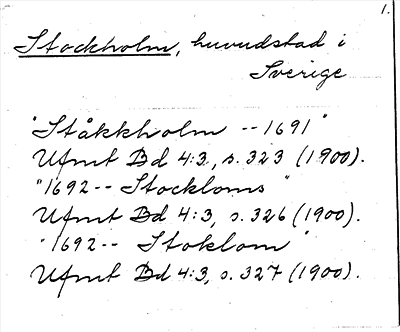 1.
Stockholm, huvudstad i
Sverige
"Ståkkholm -- 1691"
Ufmt Bd 4:3, s. 323 (1900).
"1692 -- Stockloms"
Ufmt Bd 4:3, s. 326 (1900).
"1692 -- Stoklom"
Ufmt Bd 4:3, s. 327 (1900).